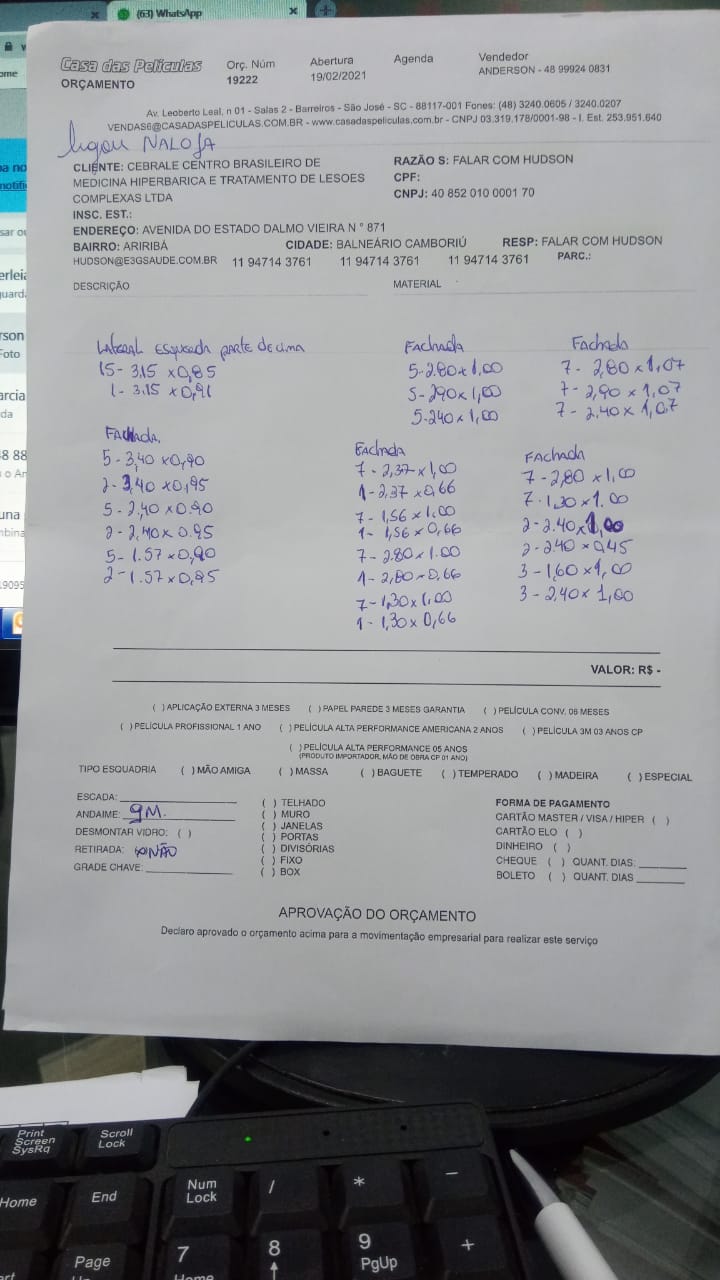 (63) WhatsApp
Casa das Películas
ORÇAMENTO
Orç. Núm
19222
Abertura
19/02/2021
Agenda
Vendedor
ANDERSON - 48 99924 0831
Av. Leoberto Leal, n 01 - Salas 2 - Barreiros - São José - SC - 88117-001 Fones: (48) 3240.0605 / 3240.0207
VENDAS6@CASADASPELICULAS.COM.BR - www.casadaspeliculas.com.br - CNPJ 03.319.178/0001-98 - I. Est. 253.951.640
ligou NA LOJA
CLIENTE: CEBRALE CENTRO BRASILEIRO DE
MEDICINA HIPERBARICA E TRATAMENTO DE LESOES
COMPLEXAS LTDA
RAZÃO S: FALAR COM HUDSON
CPF:
CNPJ: 40 852 010 0001 70
INSC. EST.:
ENDEREÇO: AVENIDA DO ESTADO DALMO VIEIRA N ° 871
BAIRRO: ARIRIBÁ CIDADE: BALNEÁRIO CAMBORIÚ RESP: FALAR COM HUDSON
HUDSON@E3GSAUDE.COM.BR 11 94714 3761 11 94714 3761 11 94714 3761 PARC.:
DESCRIÇÃO MATERIAL
Lateral esquerda parte de cima
15- 3.15 x0,85
1- 3.15 x0,91
Fachada
5-2.80x1,00
5-290x1,00
5-240x1,00
Fachada
7- 2,80x1,07
7- 2,90x1,07
7- 2,40x1,07
Fachada
5-3,40x0,90
2-3,40x0,95
5-2,40x0.90
2-2,40x0.95
5-1.57x0,90
2-1.57x0,95
Fachada
7-2,37x1,00
1-2,37x0,66
7-1,56x1.00
1-1,56x0,66
7-2.80x1.00
1-2,80-0,66
7-1,30x1,00
1-1,30x0,66
Fachada
7-2,80x1,00
7-1,30x1.00
2-2.40x1,00
2-2.40x0,45
3-1,60x1,00
3-2,40x1,00
VALOR: R$ -
( ) APLICAÇÃO EXTERNA 3 MESES ( ) PAPEL PAREDE 3 MESES GARANTIA ( ) PELÍCULA CONV. 06 MESES
( ) PELÍCULA PROFISSIONAL 1 ANO ( ) PELÍCULA ALTA PERFORMANCE AMERICANA 2 ANOS ( ) PELÍCULA 3M 03 ANOS CP
( ) PELÍCULA ALTA PERFORMANCE 05 ANOS
(PRODUTO IMPORTADOR, MÃO DE OBRA CP 01 ANO)
TIPO ESQUADRIA ( ) MÃO AMIGA ( ) MASSA ( ) BAGUETE ( ) TEMPERADO ( ) MADEIRA ( ) ESPECIAL
ESCADA:
ANDAIME: 9M.
DESMONTAR VIDRO: ( )
RETIRADA: NÃO
GRADE CHAVE:
( ) TELHADO
( ) MURO
( ) JANELAS
( ) PORTAS
( ) DIVISÓRIAS
( ) FIXO
( ) BOX
FORMA DE PAGAMENTO
CARTÃO MASTER / VISA / HIPER ( )
CARTÃO ELO ( )
DINHEIRO ( )
CHEQUE ( ) QUANT. DIAS:
BOLETO ( ) QUANT. DIAS
APROVAÇÃO DO ORÇAMENTO
Declaro aprovado o orçamento acima para a movimentação empresarial para realizar este serviço
Print
Screen
SysRq
Scroll
Lock
Home
End
Num
Lock
/
*
-
Page
7
Home
8
9
PgUp
+